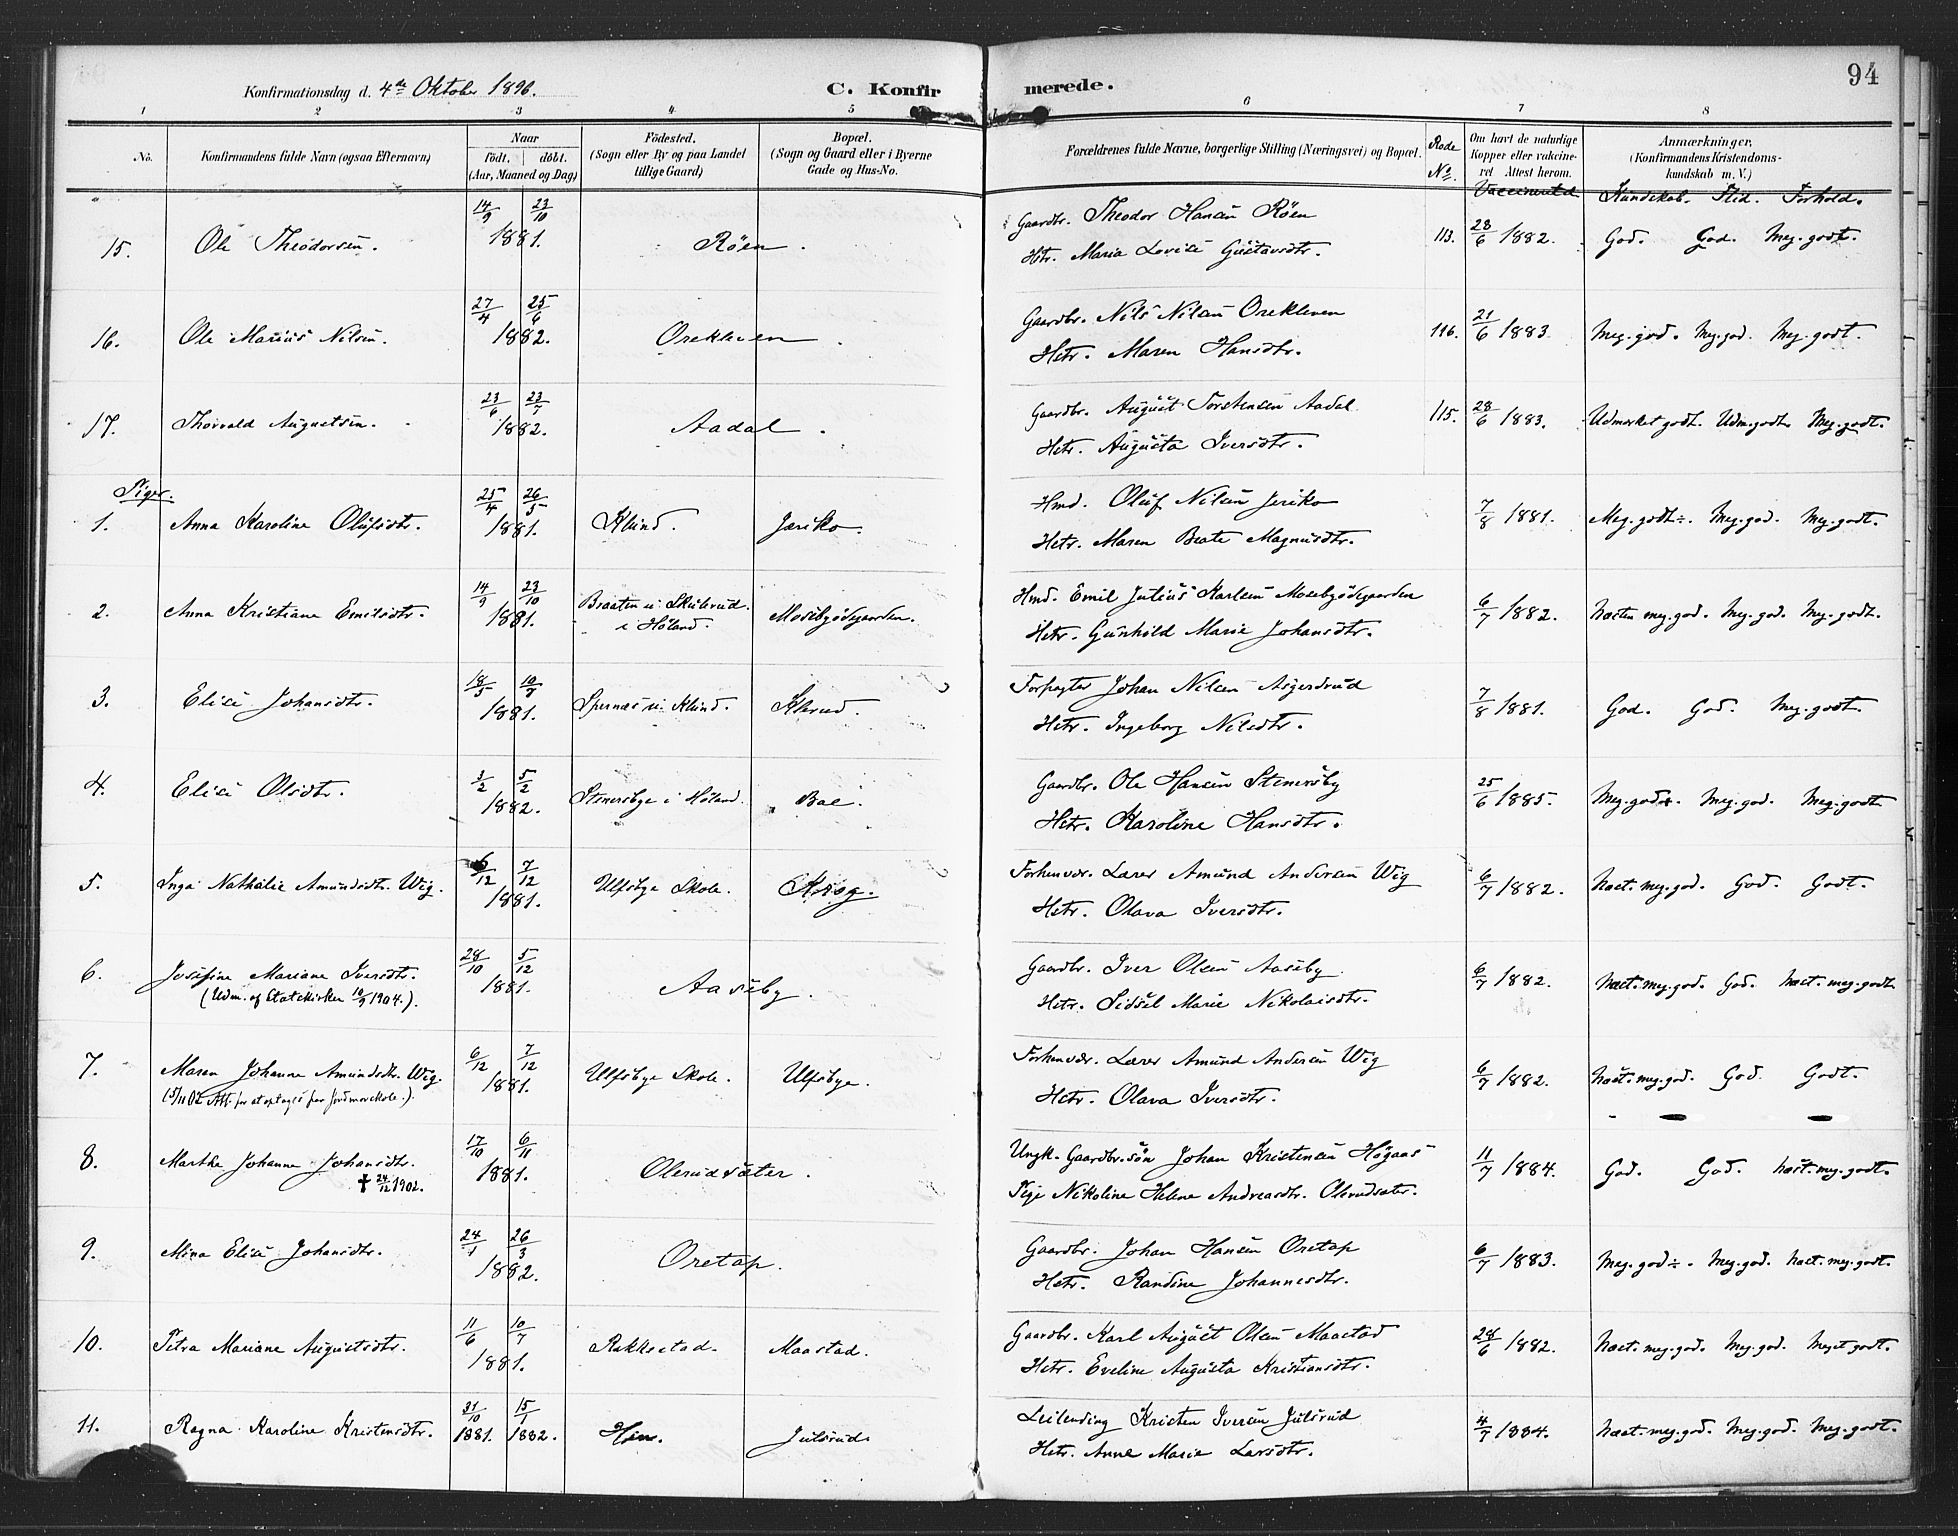 94
Konfirmationsdag d. 4de Oktober 1896. C. Konfirmerede.
1 2 3 4 5 6 7 8
No. Konfirmandens fulde Navn (ogsaa Efternavn)
Naar födt. döbt. (Aar, Maaned og Dag)
Födested. (Sogn eller By og paa Landet tillige Gaard)
Bopæl. (Sogn og Gaard eller i Byerne Gade og Hus-No.
Forældrenes fulde Navne, borgerlige Stilling (Næringsvei) og Bopæl.
Rode No.
Om havt de naturlige Kopper eller vaccineret Attest herom.
Anmærkninger, (Konfirmandens Kristendomskundskab m. V.)
Vaccinerted Kundskab. Flid. Forhold.
15. Ole Theodorsen. 14/9 23/10 1881. Röen. Gaardbr. Theodor Hansen Röen 113. 28/6 1882. God. God. Meg. godt.
Hstr. Maria Lovise Gustavsdtr.
16. Ole Marius Nilsen. 27/4 25/6 1882. Orekleven. Gaardbr. Nils Nilsen Orekleven 116. 21/6 1883. Meg. god. Meg. god. Meg. godt.
Hstr. Maren Hansdtr.
17. Thorvald Augustsen. 23/6 23/7 1882. Aadal. Gaardbr. August Torstensen Aadal 115. 28/6 1883. Udmerket godt. Udm. godt. Meg. godt.
Hstr. Augusta Iversdtr.
Piger.
1. Anna Karoline Olufsdtr. 25/4 26/5 1881. Klund. Jeriko. Hmd. Oluf Nilsen Jeriko 7/8 1881. Meg. godt ÷. Meg. god. Meg. godt.
Hstr. Maren Beate Magnusdtr.
2. Anna Kristiane Emilsdtr. 14/9 23/10 1881. Braaten u. Skulerud i Höland. Mosebyödegaarden. Hmd. Emil Julius Karlsen Mosebyödegaarden 6/7 1882. Næsten meg. god. Meg. god. Meg. godt.
Hstr. Gunhild Marie Johansdtr.
3. Elise Johansdtr. 18/5 10/7 1881. Spernæs u. Klund. Klerud. Forpagter Johan Nilsen Asgerdrud 7/8 1881. God. God. Meg. godt.
Hstr. Ingeborg Nilsdtr.
4. Elise Olsdtr. 3/2 5/2 1882. Stenersbye i Höland. Boe. Gaardbr. Ole Hansen Stenersby 25/6 1885. Meg. god. Meg. god. Meg. godt
Hstr. Karoline Hansdtr.
5. Inga Nathalie Amundsdtr. Wig. 6/12 7/12 1881. Ulfsbye Skole. Krog. Forhenvær. Lærer Amund Andersen Wig 6/7 1882. Næst. meg. god. God. Godt.
Hstr. Olava Iversdtr.
6. Josefine Mariane Iversdtr. 28/10 5/12 1881. Aaseby. Gaardbr. Iver Olsen Aaseby 6/7 1882. Næst. meg. god. God. Næst. meg. godt
(Udm. af Statskirken 10/9 1904.). Hstr. Sidsel Marie Nikolaisdtr.
7. Maren Johanne Amundsdtr. Wig. 6/12 7/12 1881. Ulfsbye Skole. Ulfsbye. Forhenvær. Lærer Amund Andersen Wig 6/7 1882. Næst. meg. god. God. Godt.
(5/11 02 Att. for at optages paa Jordmorskole.). Hstr. Olava Iversdtr.
8. Marthe Johanne Johansdtr. 17/10 6/11 1881. Olerudsæter. Ungk. Gaardbr.sön Johan Kristensen Högaas 11/7 1884. God. God. Næst. meg. godt.
† 24/12 1902. Pige Nikoline Helene Andreasdtr. Olerudsæter.
9. Mina Elise Johansdtr. 24/1 26/3 1882. Oretop. Gaardbr. Johan Hansen Oretop 6/7 1883. Meg. god ÷. Meg. god. Næst. meg. godt.
Hstr. Randine Johannesdtr.
10. Petra Mariane Augustsdtr. 11/6 10/7 1881. Rakkestad. Maastad. Gaardbr. Karl August Olsen Maastad 28/6 1882. Næst. meg. god. Meg. god. Meget godt.
Hstr. Eveline Augusta Kristiansdtr.
11. Ragna Karoline Kristensdtr. 31/10 1881. 15/1 1882. Hen. Julsrud. Leilending Kristen Iversen Julsrud 4/7 1884. Næst. meg. god. Meg. god. Meg. godt.
Hstr. Anne Marie Larsdtr.